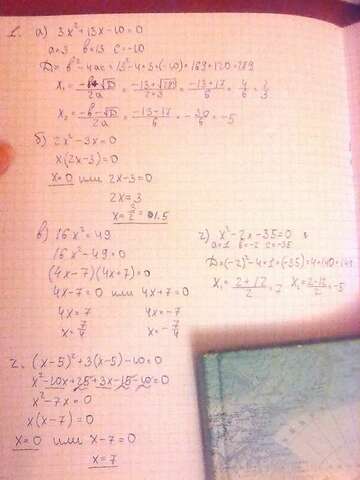 1. а) 3x² + 13x - 10 = 0
a = 3 b = 13 c = -10
D = b² - 4ac = 13² - 4 * 3 * (-10) = 169 + 120 = 289
x₁ = (-b + √D)/2a = (-13 + √289)/2*3 = (-13 + 17)/6 = 4/6 = 2/3
x₂ = (-b - √D)/2a = (-13 - 17)/6 = -30/6 = -5
б) 2x² - 3x = 0
x(2x - 3) = 0
x = 0 или 2x - 3 = 0
2x = 3
x = 3/2 = 1.5
в) 16x² = 49
16x² - 49 = 0
(4x - 7)(4x + 7) = 0
4x - 7 = 0 или 4x + 7 = 0
4x = 7 4x = -7
x = 7/4 x = -7/4
г) x² - 2x - 35 = 0
a = 1 b = -2 c = -35
D = (-2)² - 4 * 1 * (-35) = 4 + 140 = 144
x₁ = (2 + 12)/2 = 7 x₂ = (2 - 12)/2 = -5
2. (x - 5)² + 3(x - 5) - 10 = 0
x² - 10x + 25 + 3x - 15 - 10 = 0
x² - 7x = 0
x(x - 7) = 0
x = 0 или x - 7 = 0
x = 7